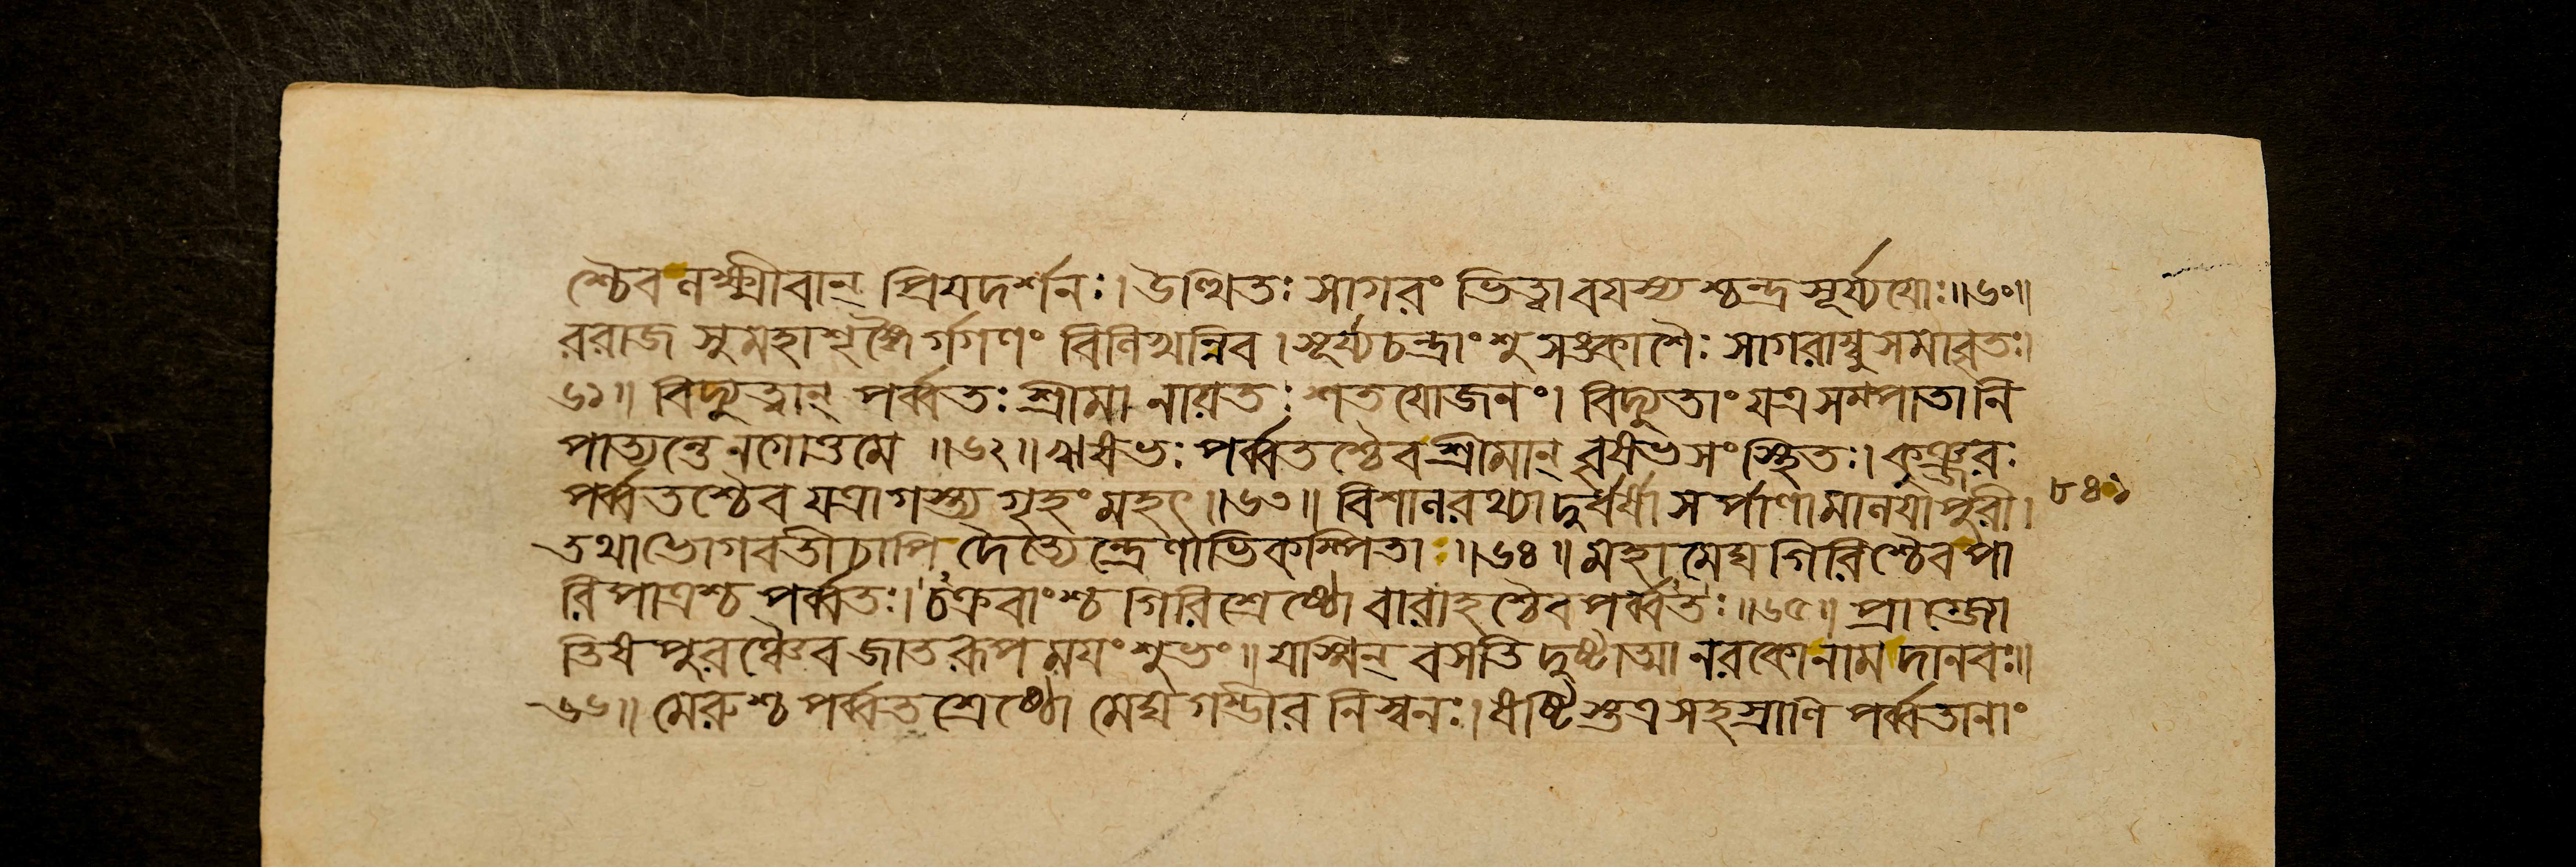 শ্চৈব লক্ষ্মীবান্ প্রিযদর্শনঃ। উত্থিতঃ সাগরং ভিত্ত্বা বযস্য শ্চন্দ্র সূর্য্যযোঃ॥৬০॥
ররাজ সুমহাশৃঙ্গৈর্গগণং বিলিখন্নিব। সূর্য্যচন্দ্রাংশু সঙ্কাশৈঃ সাগরাম্বুসমাবৃতঃ।
৬১॥ বিদ্যুত্বান্ পর্ব্বতঃ শ্রীমা নাযতঃ শতযোজনং। বিদ্যুতাং যত্র সম্পাতা নি
পাত্যন্তে নগোত্তমে ॥৬২॥ ঋষভঃ পর্ব্বতশ্চৈব শ্রীমান্ বৃষভসংস্থিতঃ। কুঞ্জরঃ
পর্ব্বতশ্চৈব যত্রাগস্ত্য গৃহং মহৎ॥৬৩॥ বিশালরথ্যা দুর্ধর্ষা সর্পাণামালযা পুরী। ৮৪১
তথা ভোগবতী চাপি দৈত্যেন্দ্রেণাভিকম্পিতা ॥৬৪॥ মহামেঘ গিরিশ্চৈব পা
রিপাত্রশ্চ পর্ব্বতঃ। চক্রবাংশ্চ গিরিশ্রেষ্ঠো বারাহশ্চৈব পর্ব্বতঃ॥৬৫॥ প্রাগ্জ্যো
তিষপুরঞ্চৈব জাতরূপমযং শুভং॥ যস্মিন্ বসতি দুষ্টাত্মা নরকো নাম দানবঃ॥
৬৬॥ মেরুশ্চ পর্ব্বতশ্রেষ্ঠো মেঘগম্ভীর নিস্বনঃ। ষষ্টিস্তত্র সহস্রাণি পর্ব্বতানাং